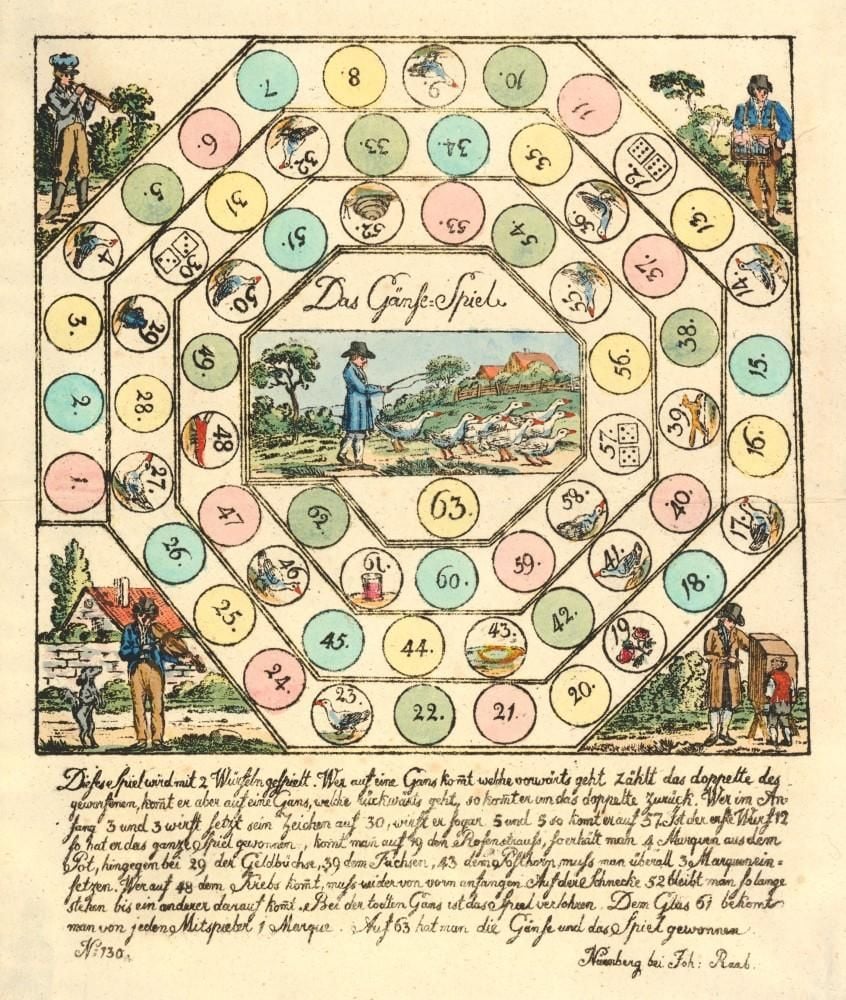 7.
8.
9.
10.
11.
6.
32.
33.
34.
35.
12.
5.
31
52.
53.
54.
36.
13.
4
30
51.
37.
14.
3.
29
50.
Das Gänse=Spiel.
55.
38.
15.
2.
28.
49.
56.
39.
16.
1.
27.
48
57.
40.
17.
47
62.
63.
58.
41.
18.
26.
46
61.
60.
59.
42.
19
25.
45.
44.
43.
20.
24.
23.
22.
21.
Dieses Spiel wird mit 2 Würfeln gespielt. Wer auf eine Gans komt welche vorwärts geht zählt das doppelte des
geworfenen, komt er aber auf eine Gans, welche rückwärts geht, so komt er um das doppelte zurück. Wer im An-
fang 3 und 3 wirft setzt sein Zeichen auf 30, wirft er sogar 5 und 5 so komt er auf 57. Ist der erste Wurf 12
so hat er das ganze Spiel gewonnen, komt man auf 19 den Rosenstrauss, so erhält man 4 Marquen aus dem
Pot, hingegen bei 29 der Geldbüchse, 39 dem Füchsen, 43 dem Posthorn muss man überall 3 Marquen ein-
setzen. Wer auf 48 dem Krebs komt, muss wider von vorn anfangen. Auf der Schnecke 52 bleibt man so lange
stehen bis ein anderer darauf komt. Bei der todten Gans ist das Spiel verlohren. Dem Glas 61 bekomt
man von jeden Mitspieler 1 Marque. Auf 63 hat man die Gänse und das Spiel gewonnen.
No. 130.
Nürnberg bei Joh: Raab.